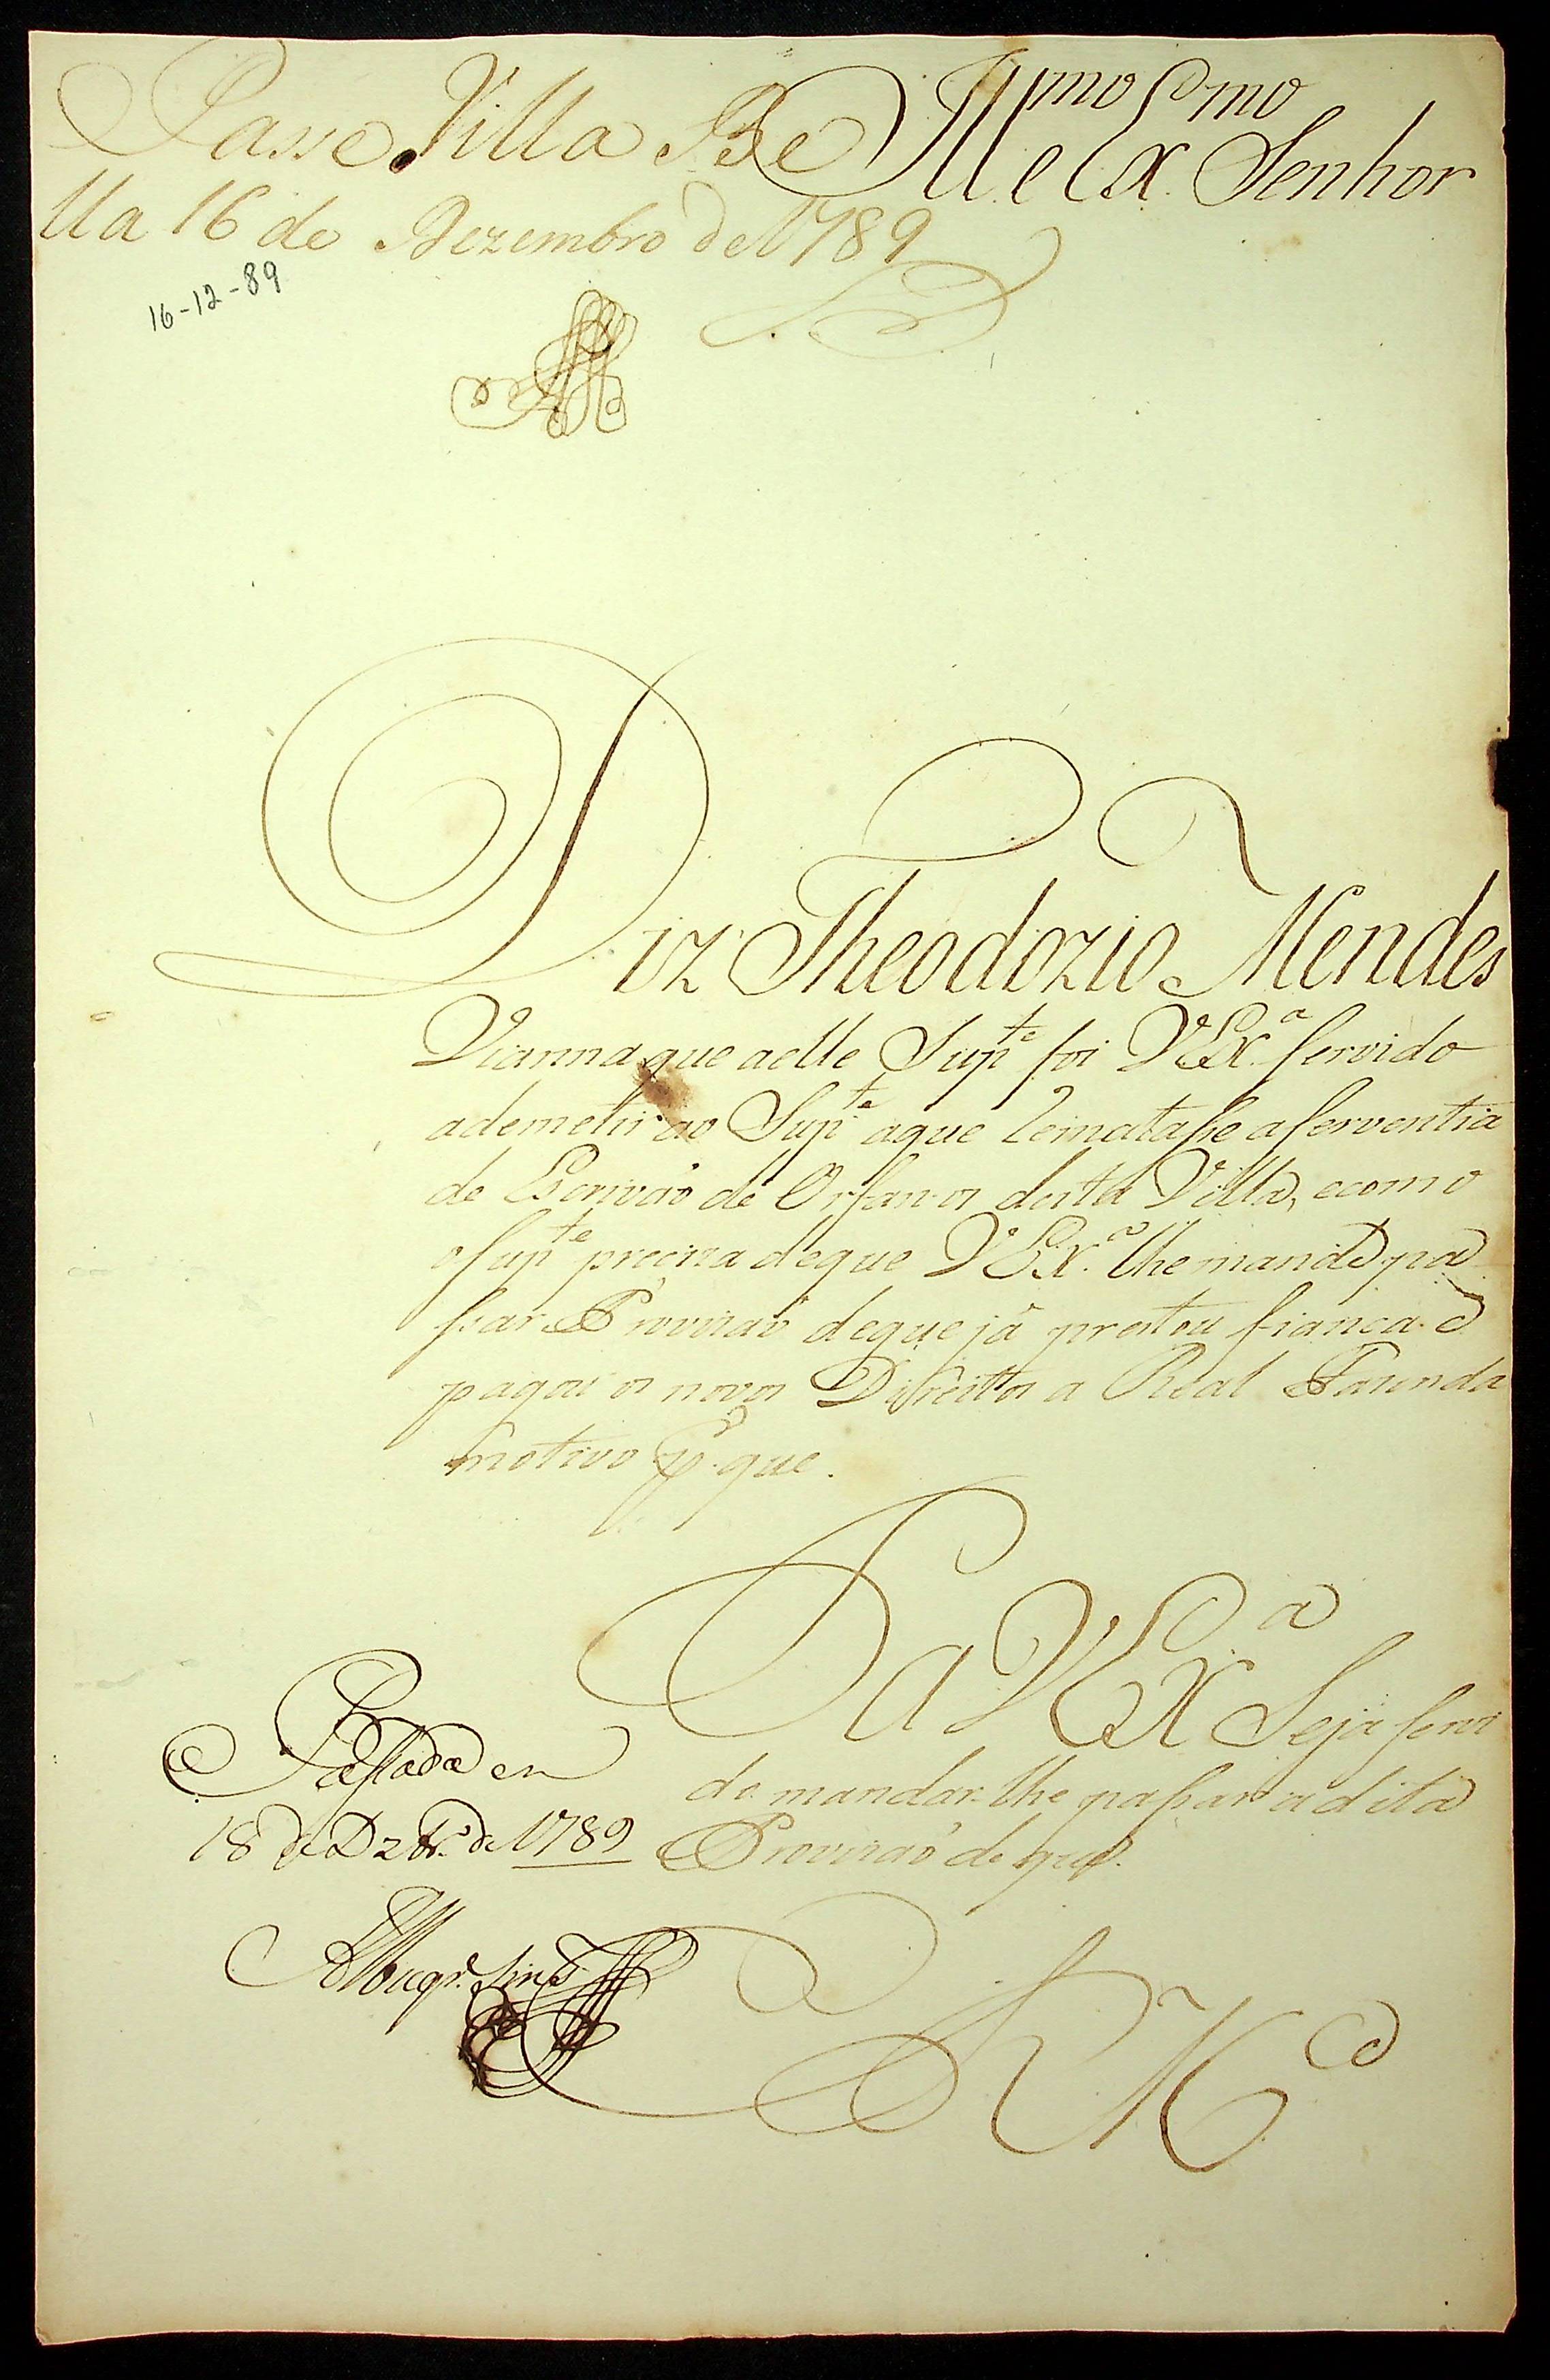 Passe. Villa Be
lla 16 de Dezembro de 1789
16-12-89
Ill.mo e Ex.mo Senhor
Diz Theodozio Mendes
Vianna que aelle Sup.te foi V Ex.a servido
ademetir ao Sup.te aque Rematasse a serventia
de Escrivaõ de Orfanos desta Villa, ecomo
o Sup.te preciza deque V Ex.a lhe mande pa
ssar Provizaõ deque já prestou fianca e
pagou os novos Direitos a Real Fazenda
motivo p.r que.
Pa V Ex.a Seja servi
do mandar-lhe passar a dita
Provizaõ de que.
E R M.ce
Passada em
18 de Dzbr.o de 1789
Albuqr.e